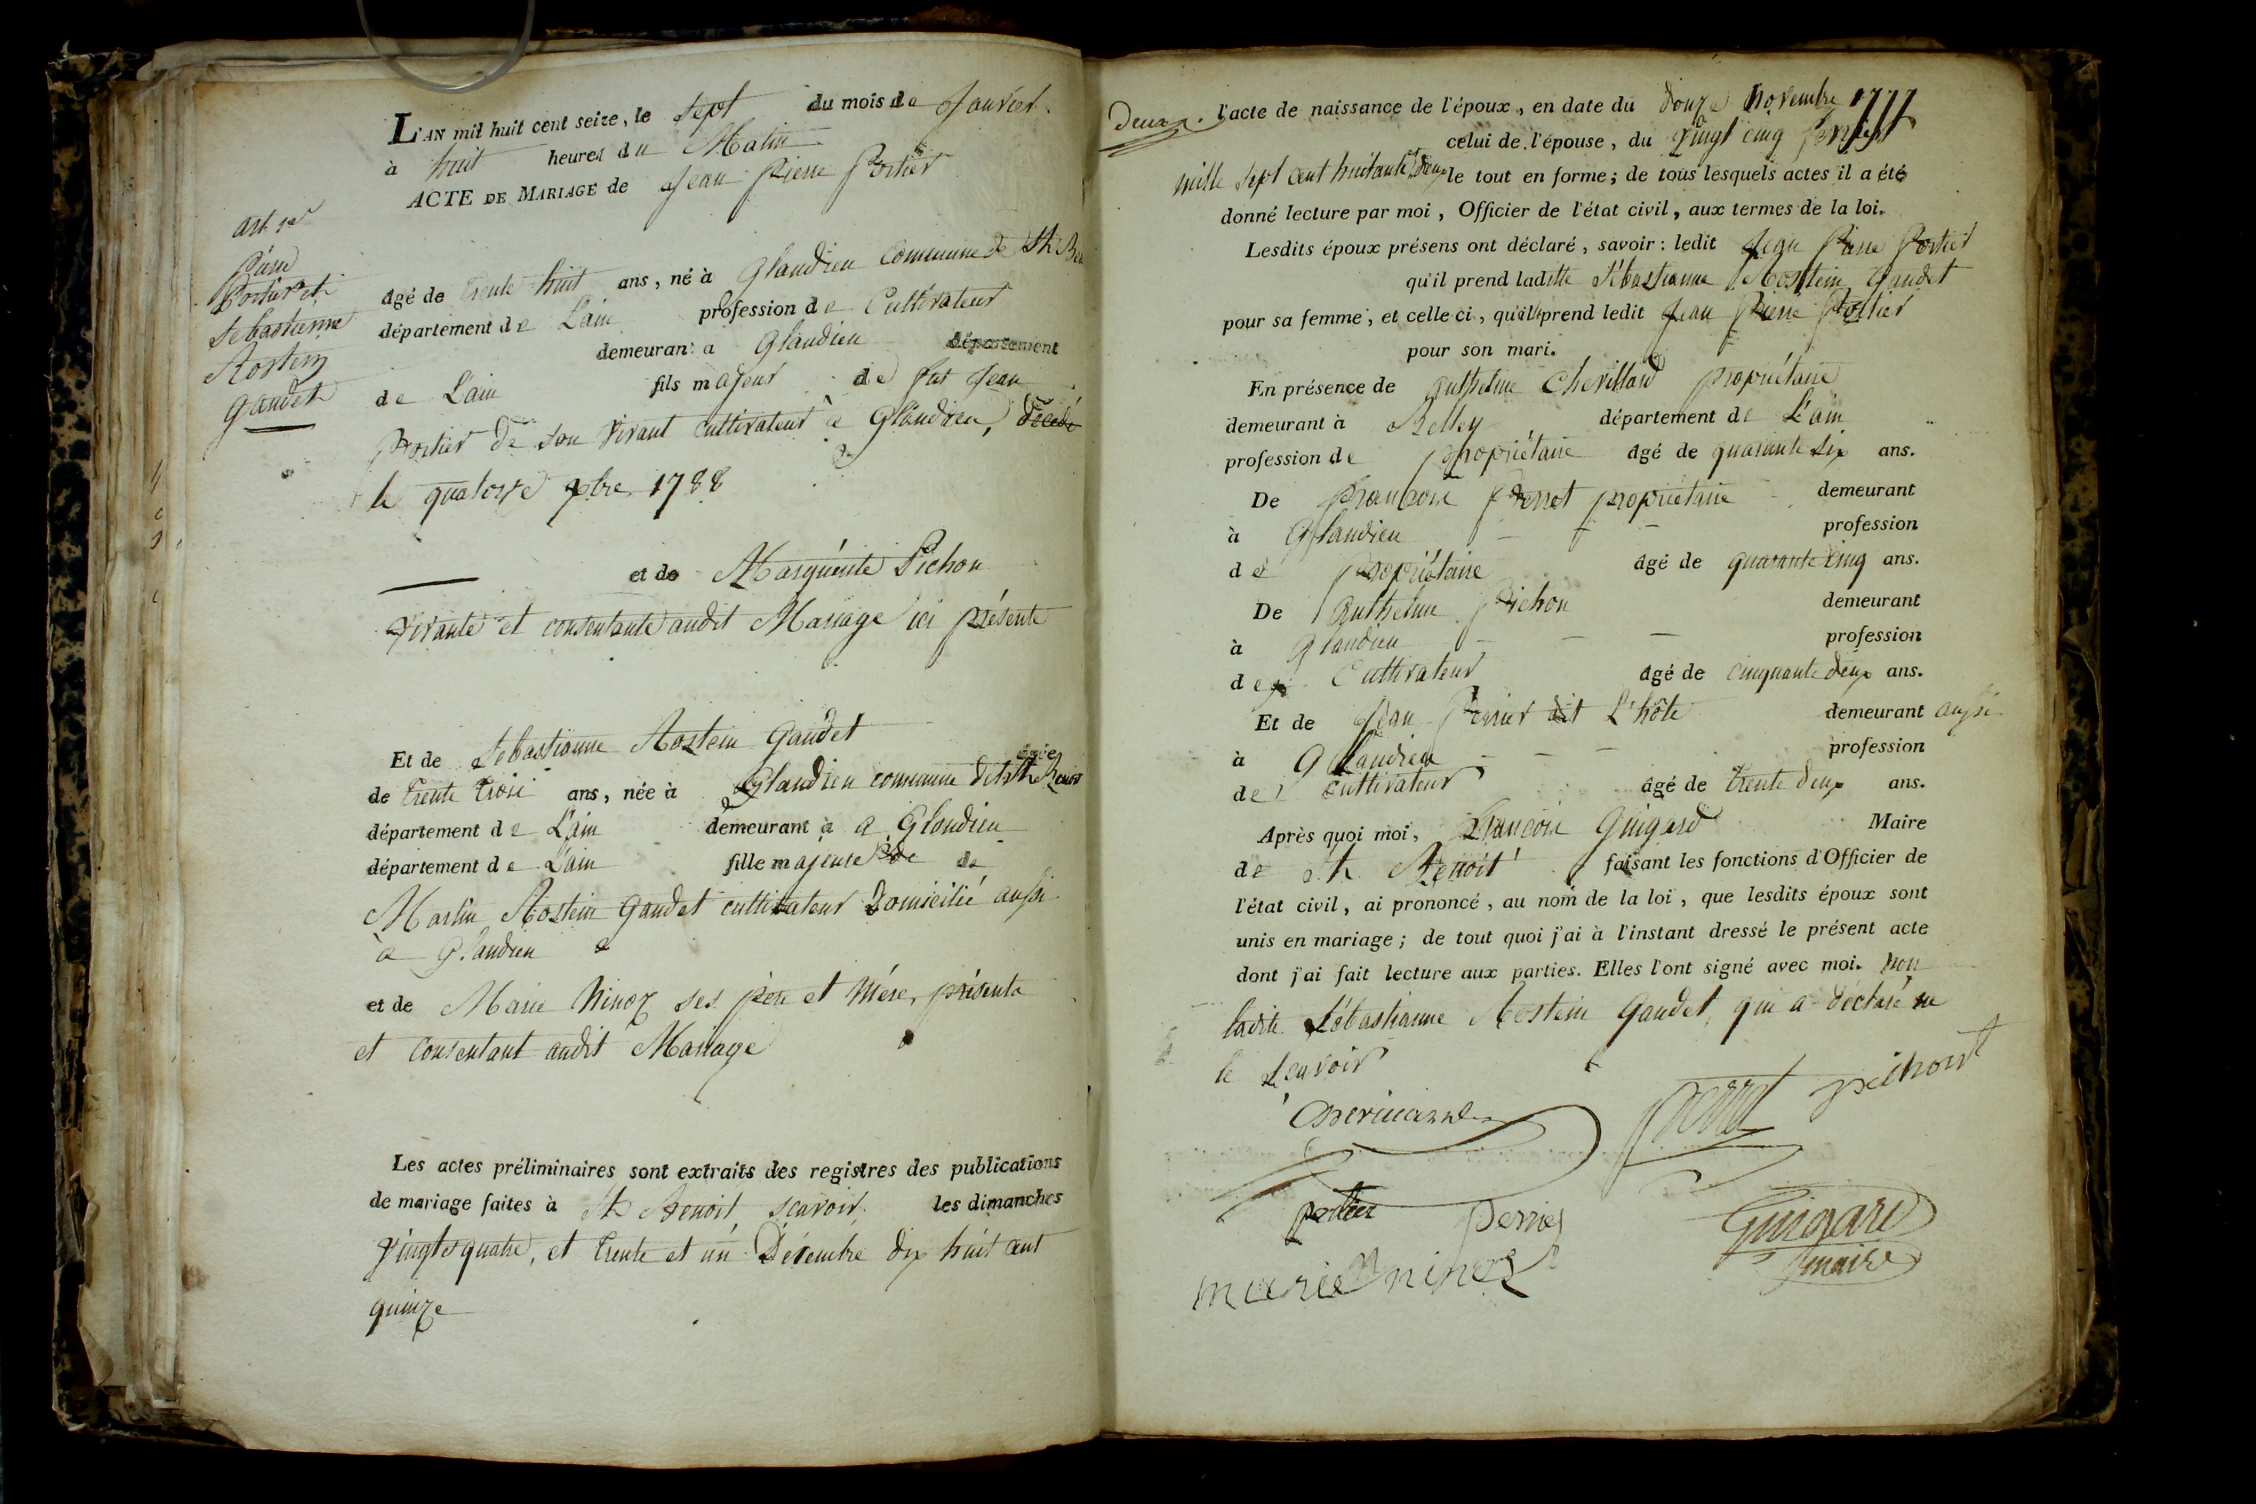 L'AN mil huit cent seize, le sept du mois de Janvier.
à huit heures du Matin
ACTE DE MARIAGE de Jean Pierre Portier
art. 1er
Pierre
Portier et
Sebastienne
Rostein
gaudet
âgé de trente huit ans, né à Glandieu Commune de St. Ben
département de L'ain profession de Cultivateur
demeurant a Glandieu département
de L'ain fils majeur de fut Jean
Portier de son vivant cultivateur à Glandieu, décedé
le quatorze 9bre 1788
et de Marguerite Pichon
vivante et consentante audit Mariage ici présente
Et de Sébastianne Rostein Gaudet âgée
de trente trois ans, née à Glandieu commune de St. Benoit
département de L'ain demeurant à a Glandieu
département de L'ain fille majeure de
Martin Rostein Gaudet cultivateur domicilié aussi
à Glandieu
et de Marie Ninoz ses père et Mère, présents
et consentant audit Mariage
Les actes préliminaires sont extraits des registres des publications
de mariage faites à St Benoit scavoir les dimanches
vingt quatre, et trente et un Décembre dix huit cent
quinze
Deux. l'acte de naissance de l'époux, en date du douze Novembre 1777
celui de l'épouse, du vingt cinq fevrier
mille sept cent huitante deux le tout en forme; de tous lesquels actes il a été
donné lecture par moi, Officier de l'état civil, aux termes de la loi.
Lesdits époux présens ont déclaré, savoir: ledit Jean Pierre Portier
qu'il prend laditte Sébastianne Rostein Gaudet
pour sa femme, et celle ci, qu'ill prend ledit Jean Pierre Portier
pour son mari.
En présence de Anthelme Chevillard propriétaire
demeurant à Belley département de L'ain
profession de propriétaire âgé de quarante six ans.
De françois Perrot propriétaire demeurant
à Glandieu profession
de Propriétaire âgé de quarante cinq ans.
De Anthelme Pichon demeurant
à Glandieu profession
de Cultivateur âgé de cinquante deux ans.
Et de Jean Perrier dit L'hôte demeurant aussi
à Glandieu profession
de cultivateur âgé de trente deux ans.
Après quoi moi, François Guigard Maire
de St. Benoit faisant les fonctions d'Officier de
l'état civil, ai prononcé, au nom de la loi, que lesdits époux sont
unis en mariage; de tout quoi j'ai à l'instant dressé le présent acte
dont j'ai fait lecture aux parties. Elles l'ont signé avec moi. non
ladite Sébastianne Rostein Gaudet, qui a déclaré ne
le scavoir
Perrot pichont
portier perrier Guigard
maire
marie ninoz